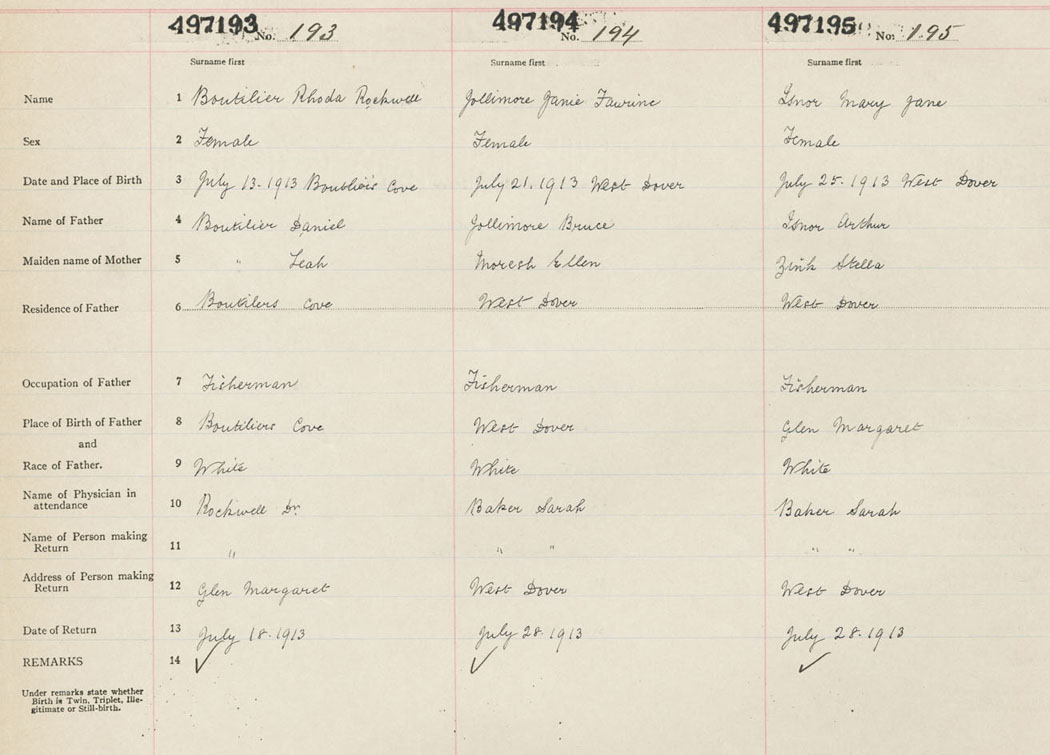 497193 No. 193 497194 No. 194 497195 No: 195
Surname first Surname first Surname first
Name 1 Boutilier Rhoda Rockwell Jollimore Janie Fawrine Isnor Mary Jane
Sex 2 Female Female Female
Date and Place of Birth 3 July 13-1913 Boutiliers Cove July 21.1913 West Dover July 25-1913 West Dover
Name of Father 4 Boutilier Daniel Jollimore Bruce Isnor Arthur
Maiden name of Mother 5 " Leah Moresh Ellen Zink Stella
Residence of Father 6 Boutilers Cove West Dover West Dover
Occupation of Father 7 Fisherman Fisherman Fisherman
Place of Birth of Father 8 Boutiliers Cove West Dover Glen Margaret
and
Race of Father. 9 White White White
Name of Physician in
attendance 10 Rockwell Dr Baker Sarah Baker Sarah
Name of Person making
Return 11 " " " " "
Address of Person making
Return 12 Glen Margaret West Dover West Dover
Date of Return 13 July 18-1913 July 28.1913 July 28-1913
REMARKS 14 ✓ ✓ ✓
Under remarks state whether
Birth is Twin, Triplet, Ille-
gitimate or Still-birth.